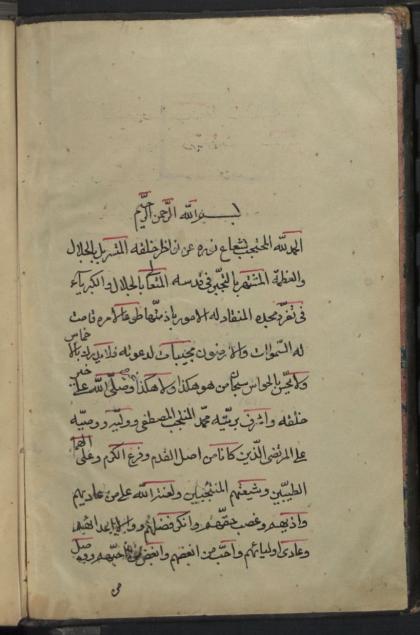 بسم الله الرحمن الرحيم
الحمد لله المحتجب بشعاع نوره عن نواظر خلقه المتسربل بالجلال
والعظمة المشتهر بالتجبر في قدسه المتعالي بالجلال والكبرياء
في تفرد مجده المنقاد له الامور بازمتها طوعا لامره قامت
له السموات والارضون مجيبات لدعوته فلا
ولا بالحواس سبحان من هو هكذا ولا هكذا غيره وصلى الله على
خلقه واشرف بريته محمد المنتجب المصطفى ووليه ووصيه
علي المرتضى الذين كانا من اصل القدم وفرع الكرم وعلى آلهما
الطيبين وشيعتهم المنتجبين ولعنة الله على من عاديهم
واذيهم وغصب حقهم وانكر فضلهم
وعادى اوليائهم واحب من ابغضهم وابغض من احبهم